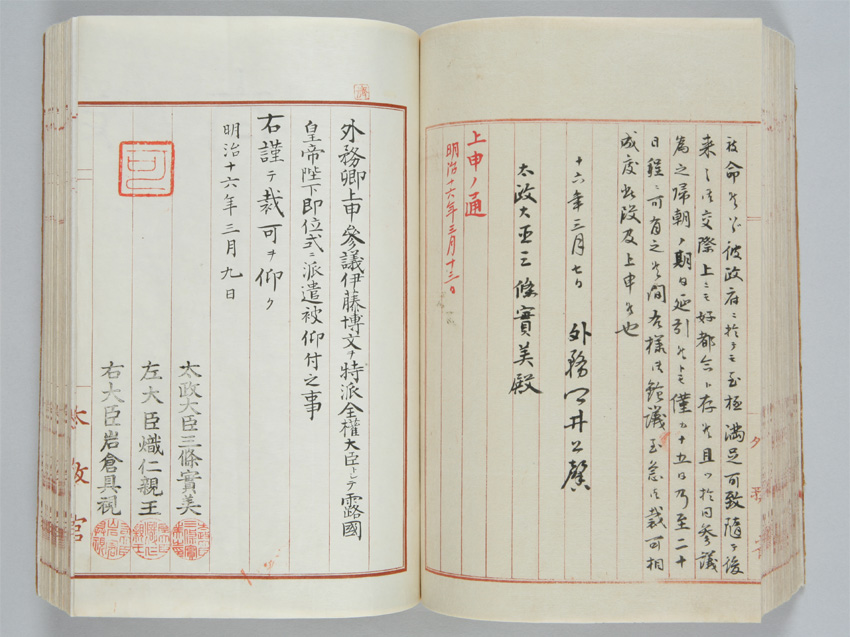 被命候ハヽ彼政府ニ於テモ至極満足可致隨テ後
来之御交際上ニモ好都合ト存候且ツ於同參議
為之帰朝ノ期日延引候トモ僅々十五日乃至二十
日程ニ可有之候間
成度此段及上申候也
十六年三月七日
外務卿井上馨
太政大臣三條實美殿
上申ノ通
明治十六年三月十三日
外務卿上申參議伊藤博文ヲ特派全權大臣トシテ露國
皇帝陛下即位式ニ派遣被仰付之事
右謹テ裁可ヲ仰ク
明治十六年三月九日
太政大臣三條實美
左大臣熾仁親王
右大臣岩倉具視
可
太政官